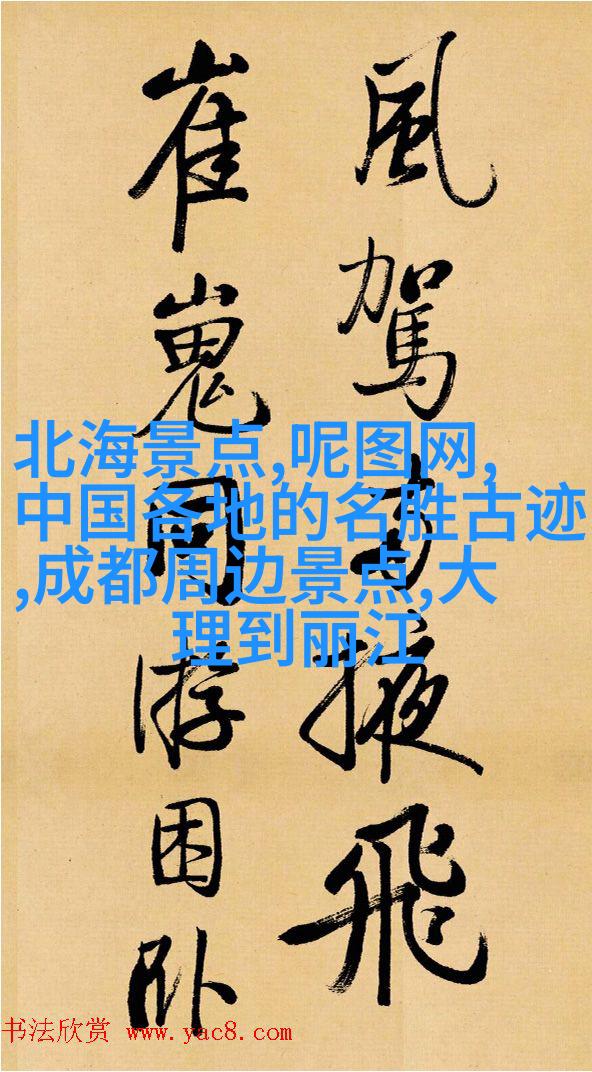 風駕掖飛
崔嵬同游困卧
北海景点,呢图网,
中国各地的名胜古迹
,成都周边景点,大
理到丽江
书法欣赏 www.yac8.com